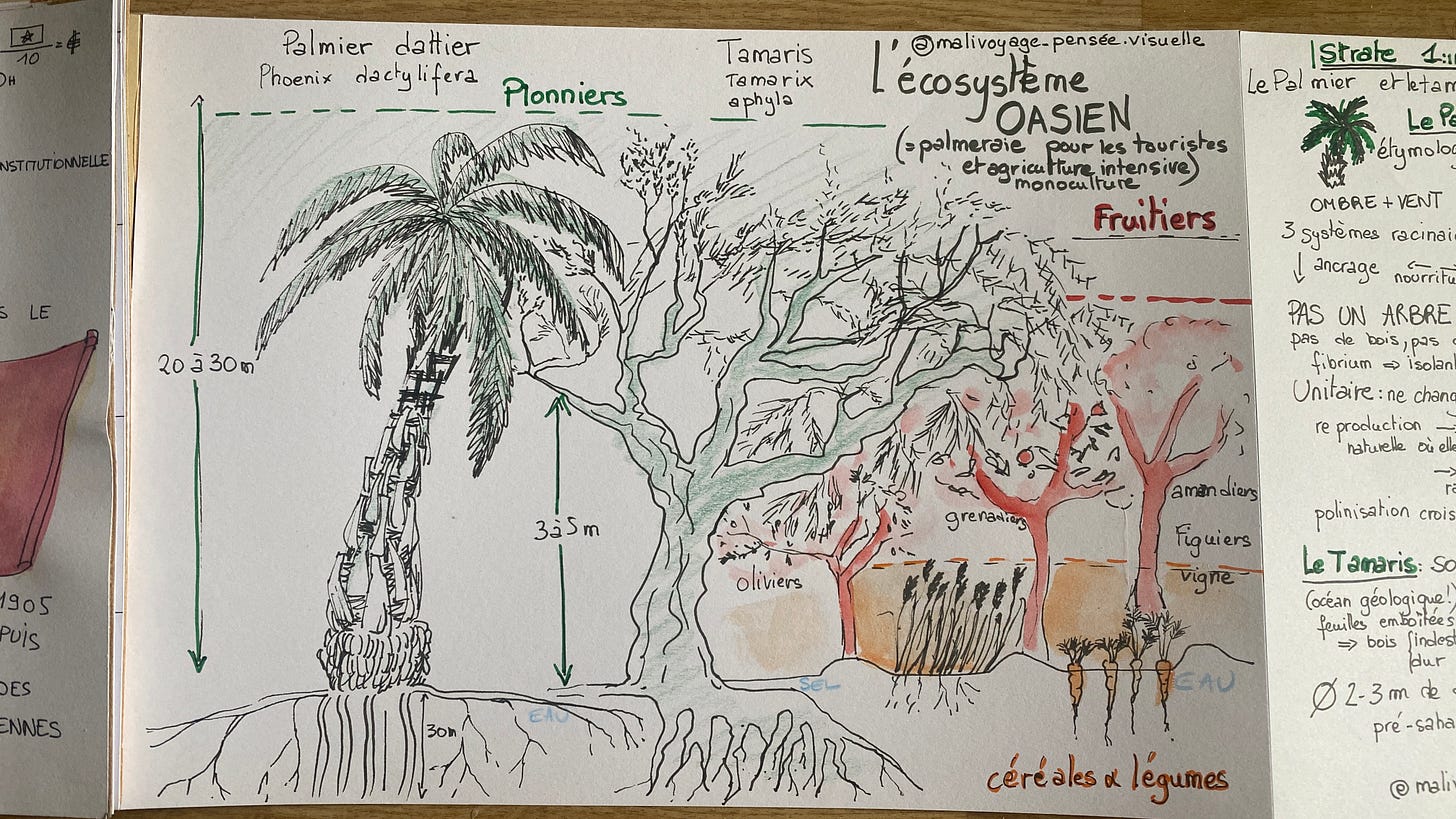 10
DH
NSTITUTIONNELLE
S LE
1905
PUIS
DES
ENNES
Palmier dattier
Phoenix dactylifera
Pionniers
Tamaris
Tamarix
aphyla
@malivoyage-pensée.visuelle
L'écosystème
OASIEN
(=palmeraie pour les touristes
et agriculture intensive)
monoculture
Fruitiers
20 à 30m
3 à 5 m
amandiers
grenadiers
Figuiers
vigne
oliviers
SEL
EAU
EAU
30m
céréales & légumes
Strate 1:
Le Palmier et le tam
Le Pa
étymolo
OMBRE + VENT
3 systèmes racinai
↓ ancrage ←
nourritu
PAS UN ARBRE
pas de bois, pas
fibrium ⇒ isolan
Unitaire : ne chang
reproduction →
naturelle où elle
→
ra
polinisation crois
Le Tamaris : so
(océan géologique!
feuilles emboîtées
⇒ bois {indest
dur
Ø 2-3 m de
pré-saha
@maliv